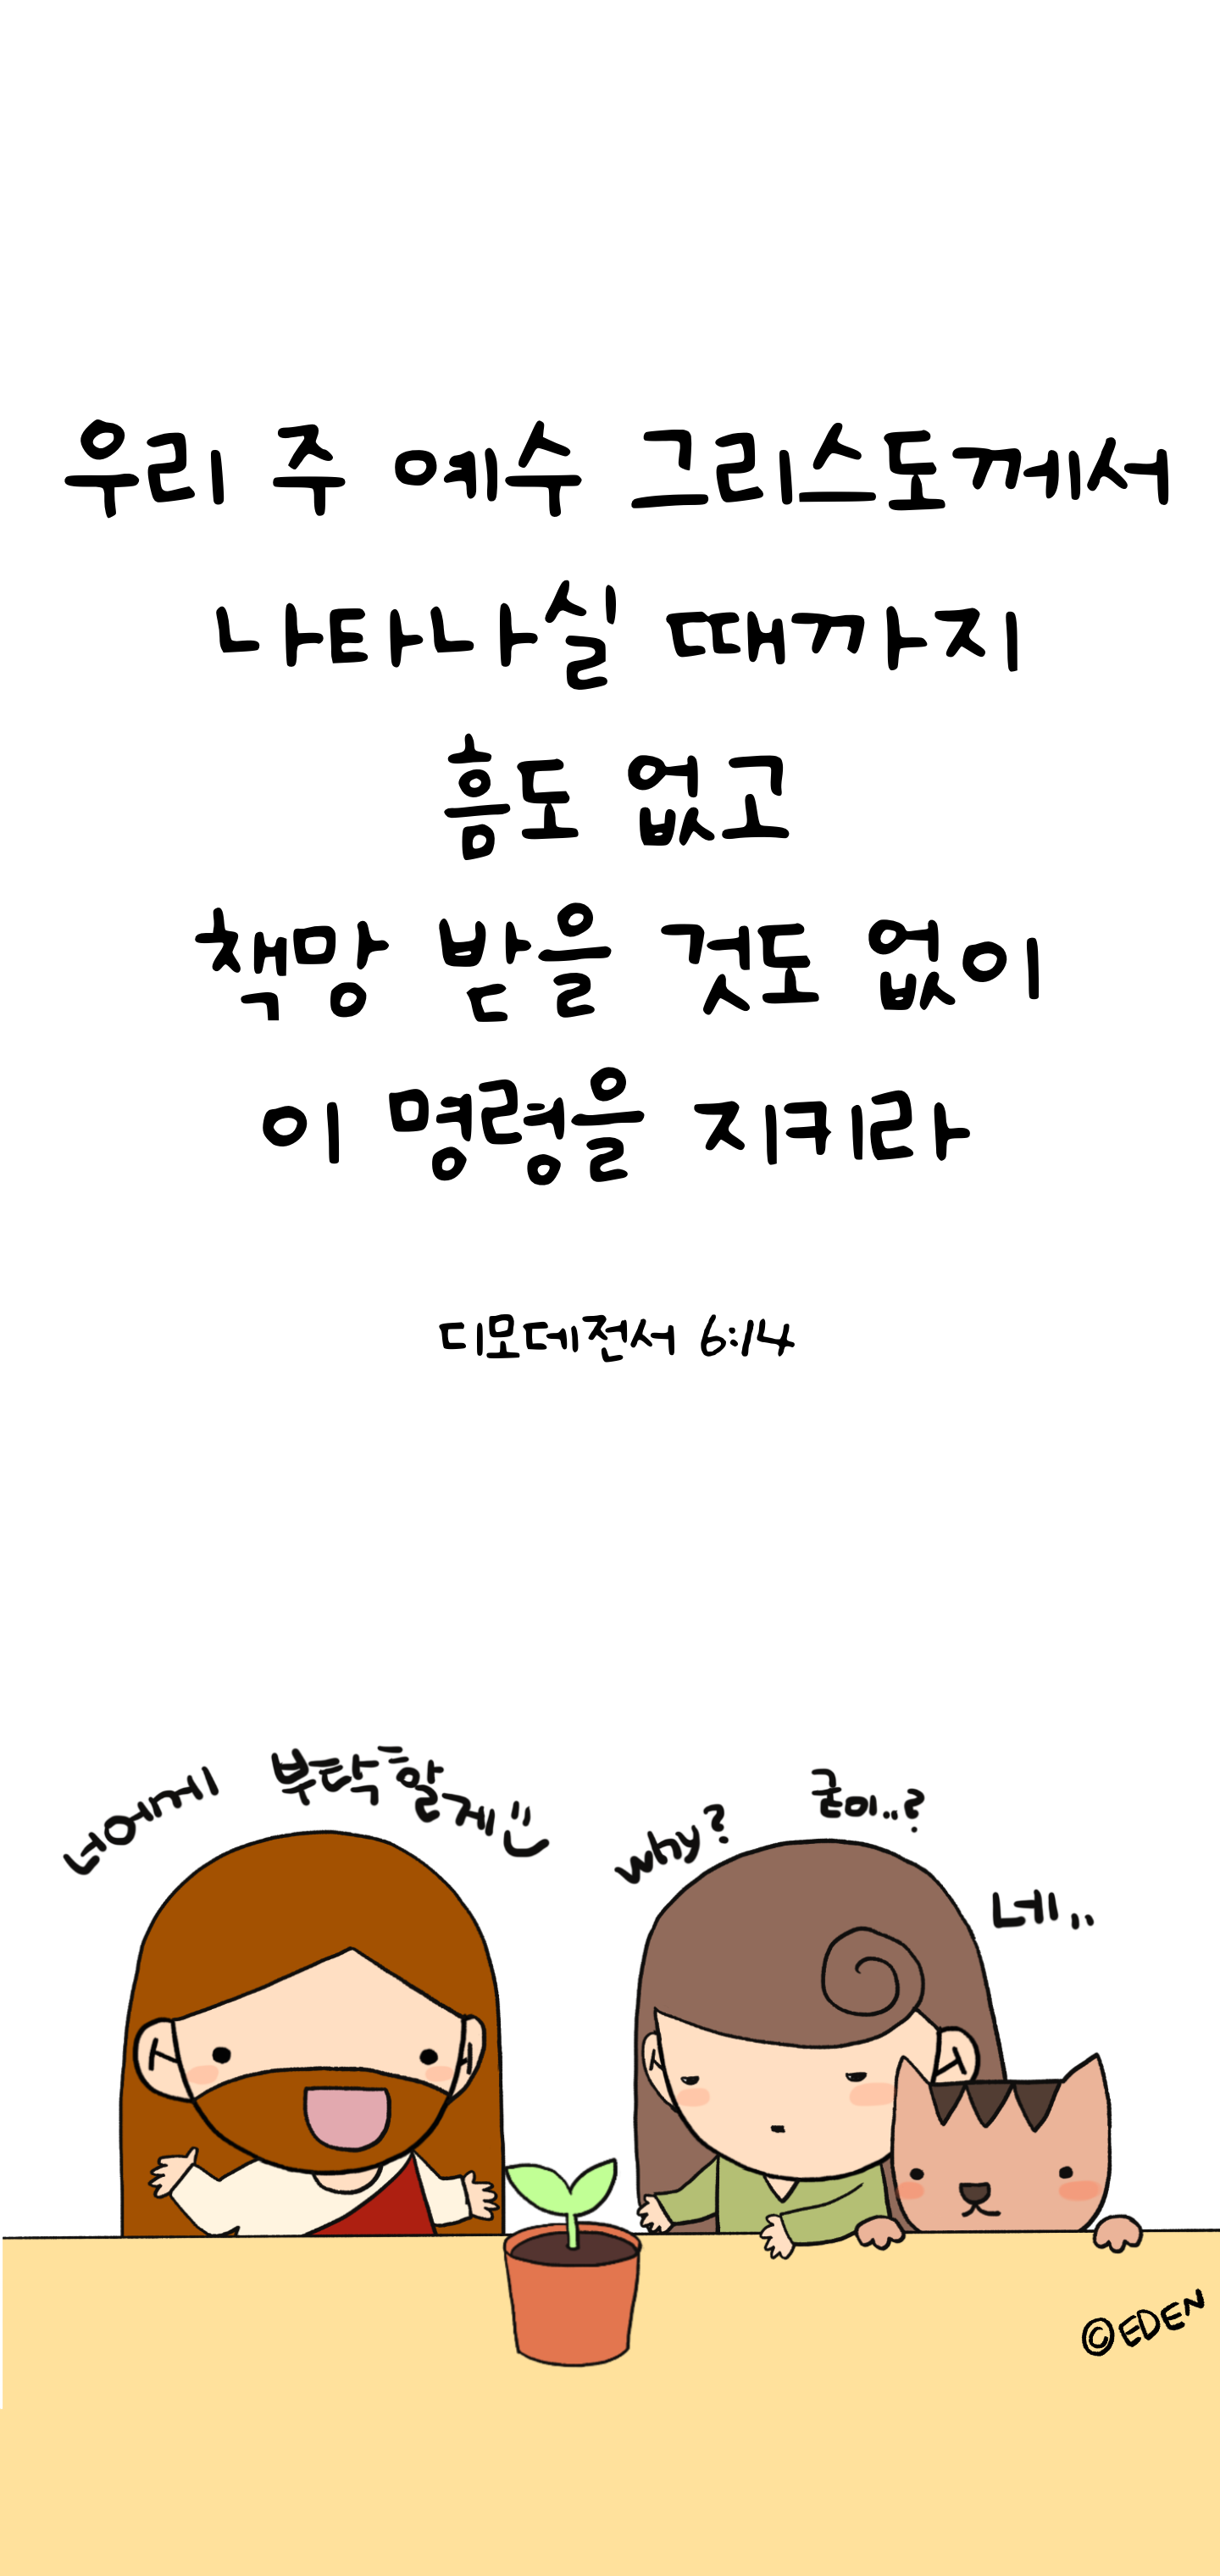 우리 주 예수 그리스도께서
나타나실 때까지
흠도 없고
책망 받을 것도 없이
이 명령을 지키라
디모데전서 6:14
너에게 부탁할게
why? 굳이..?
네..
©EDEN